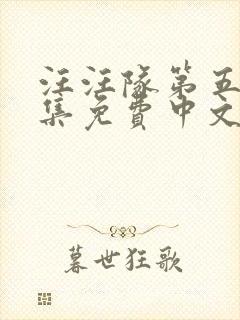 汪汪隊第五
集免費中文
暮世狂歌